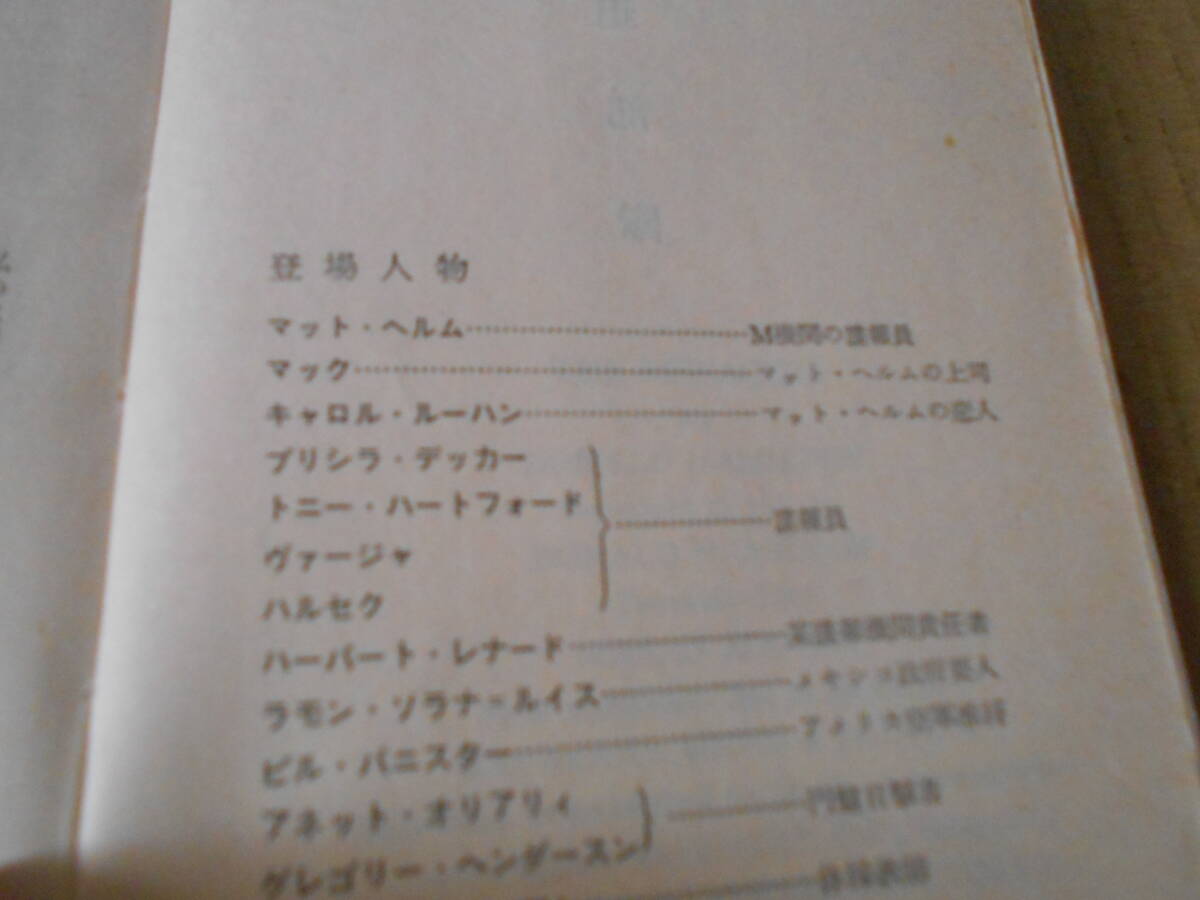 登場人物
マット・ヘルム…………………………M機関の諜報員
マック……………………………………マット・ヘルムの上司
キャロル・ルーハン……………………マット・ヘルムの恋人
プリシラ・デッカー
トニー・ハートフォード
ヴァージャ
ハルセク
……………諜報員
ハーバート・レナード…………………某諜報機関責任者
ラモン・ソラナ=ルイス………………メキシコ政府要人
ビル・バニスター………………………アメリカ空軍准将
アネット・オリアリィ
グレゴリー・ヘンダースン
…………円盤目撃者